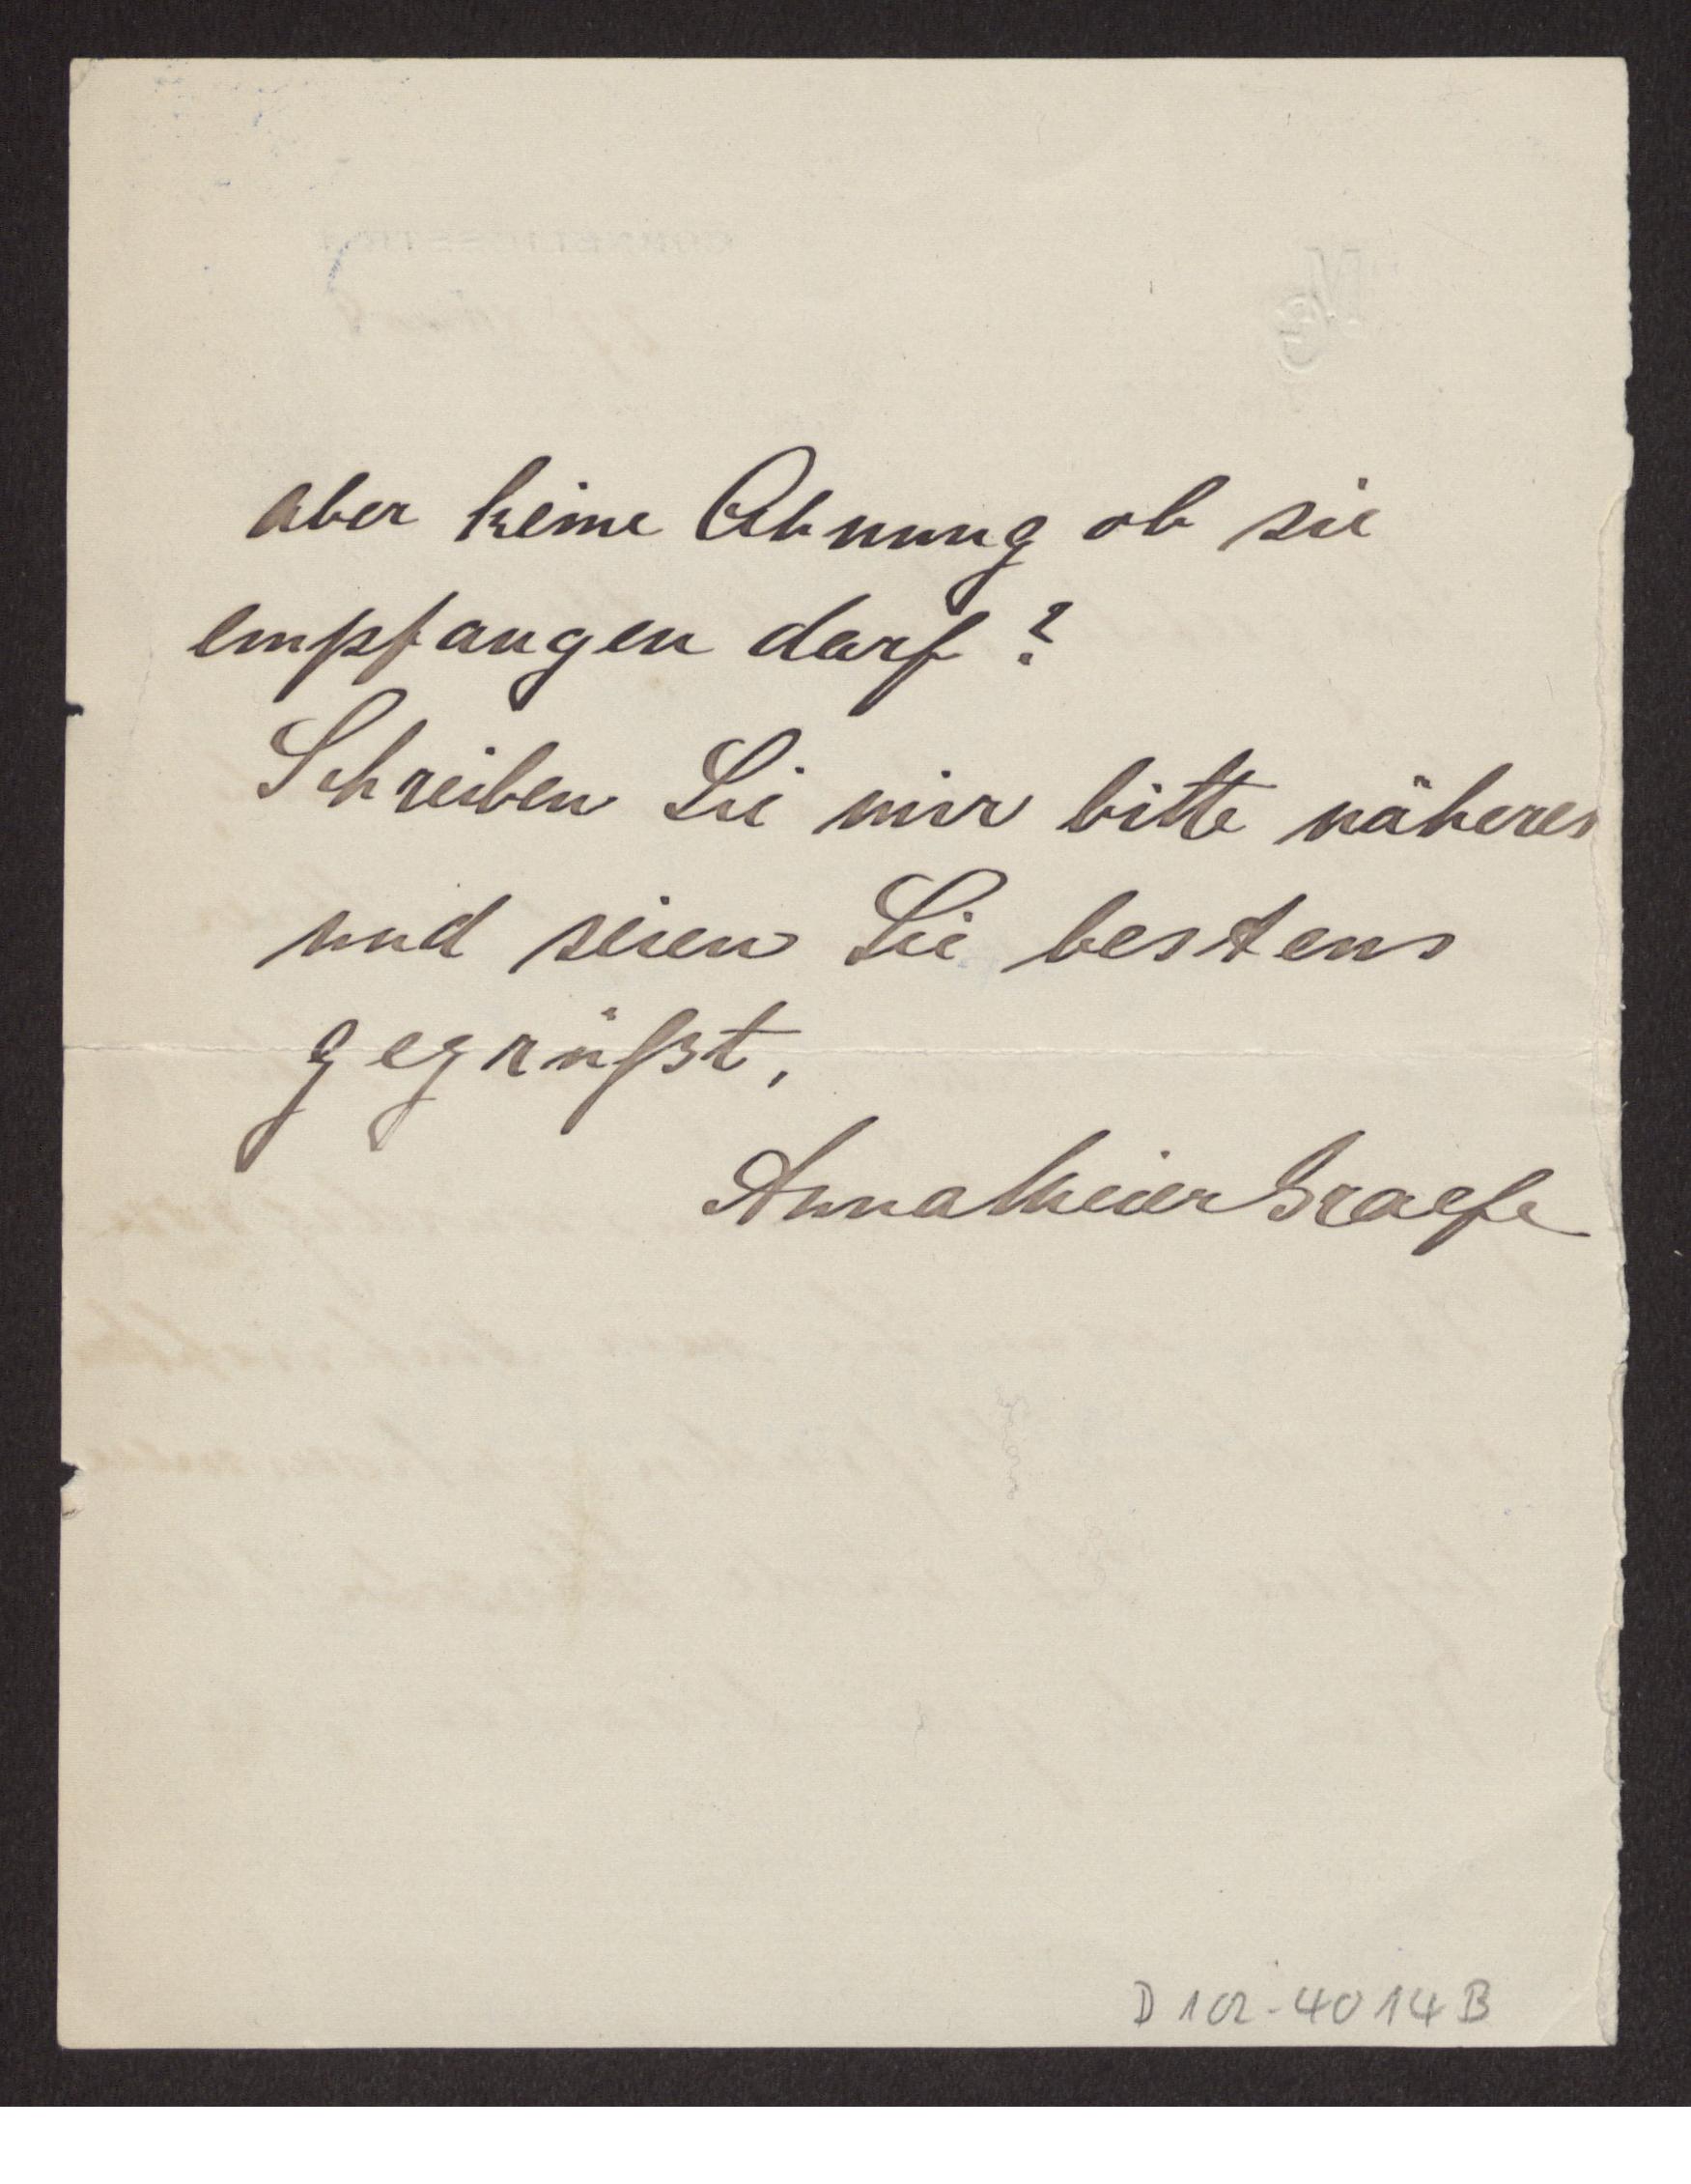 aber keine Ahnung ob sie
empfangen darf?
Schreiben Sie mir bitte näheres
und seien Sie bestens
gegrüßt,
Anna Meier Graefe
D 102-4014 B